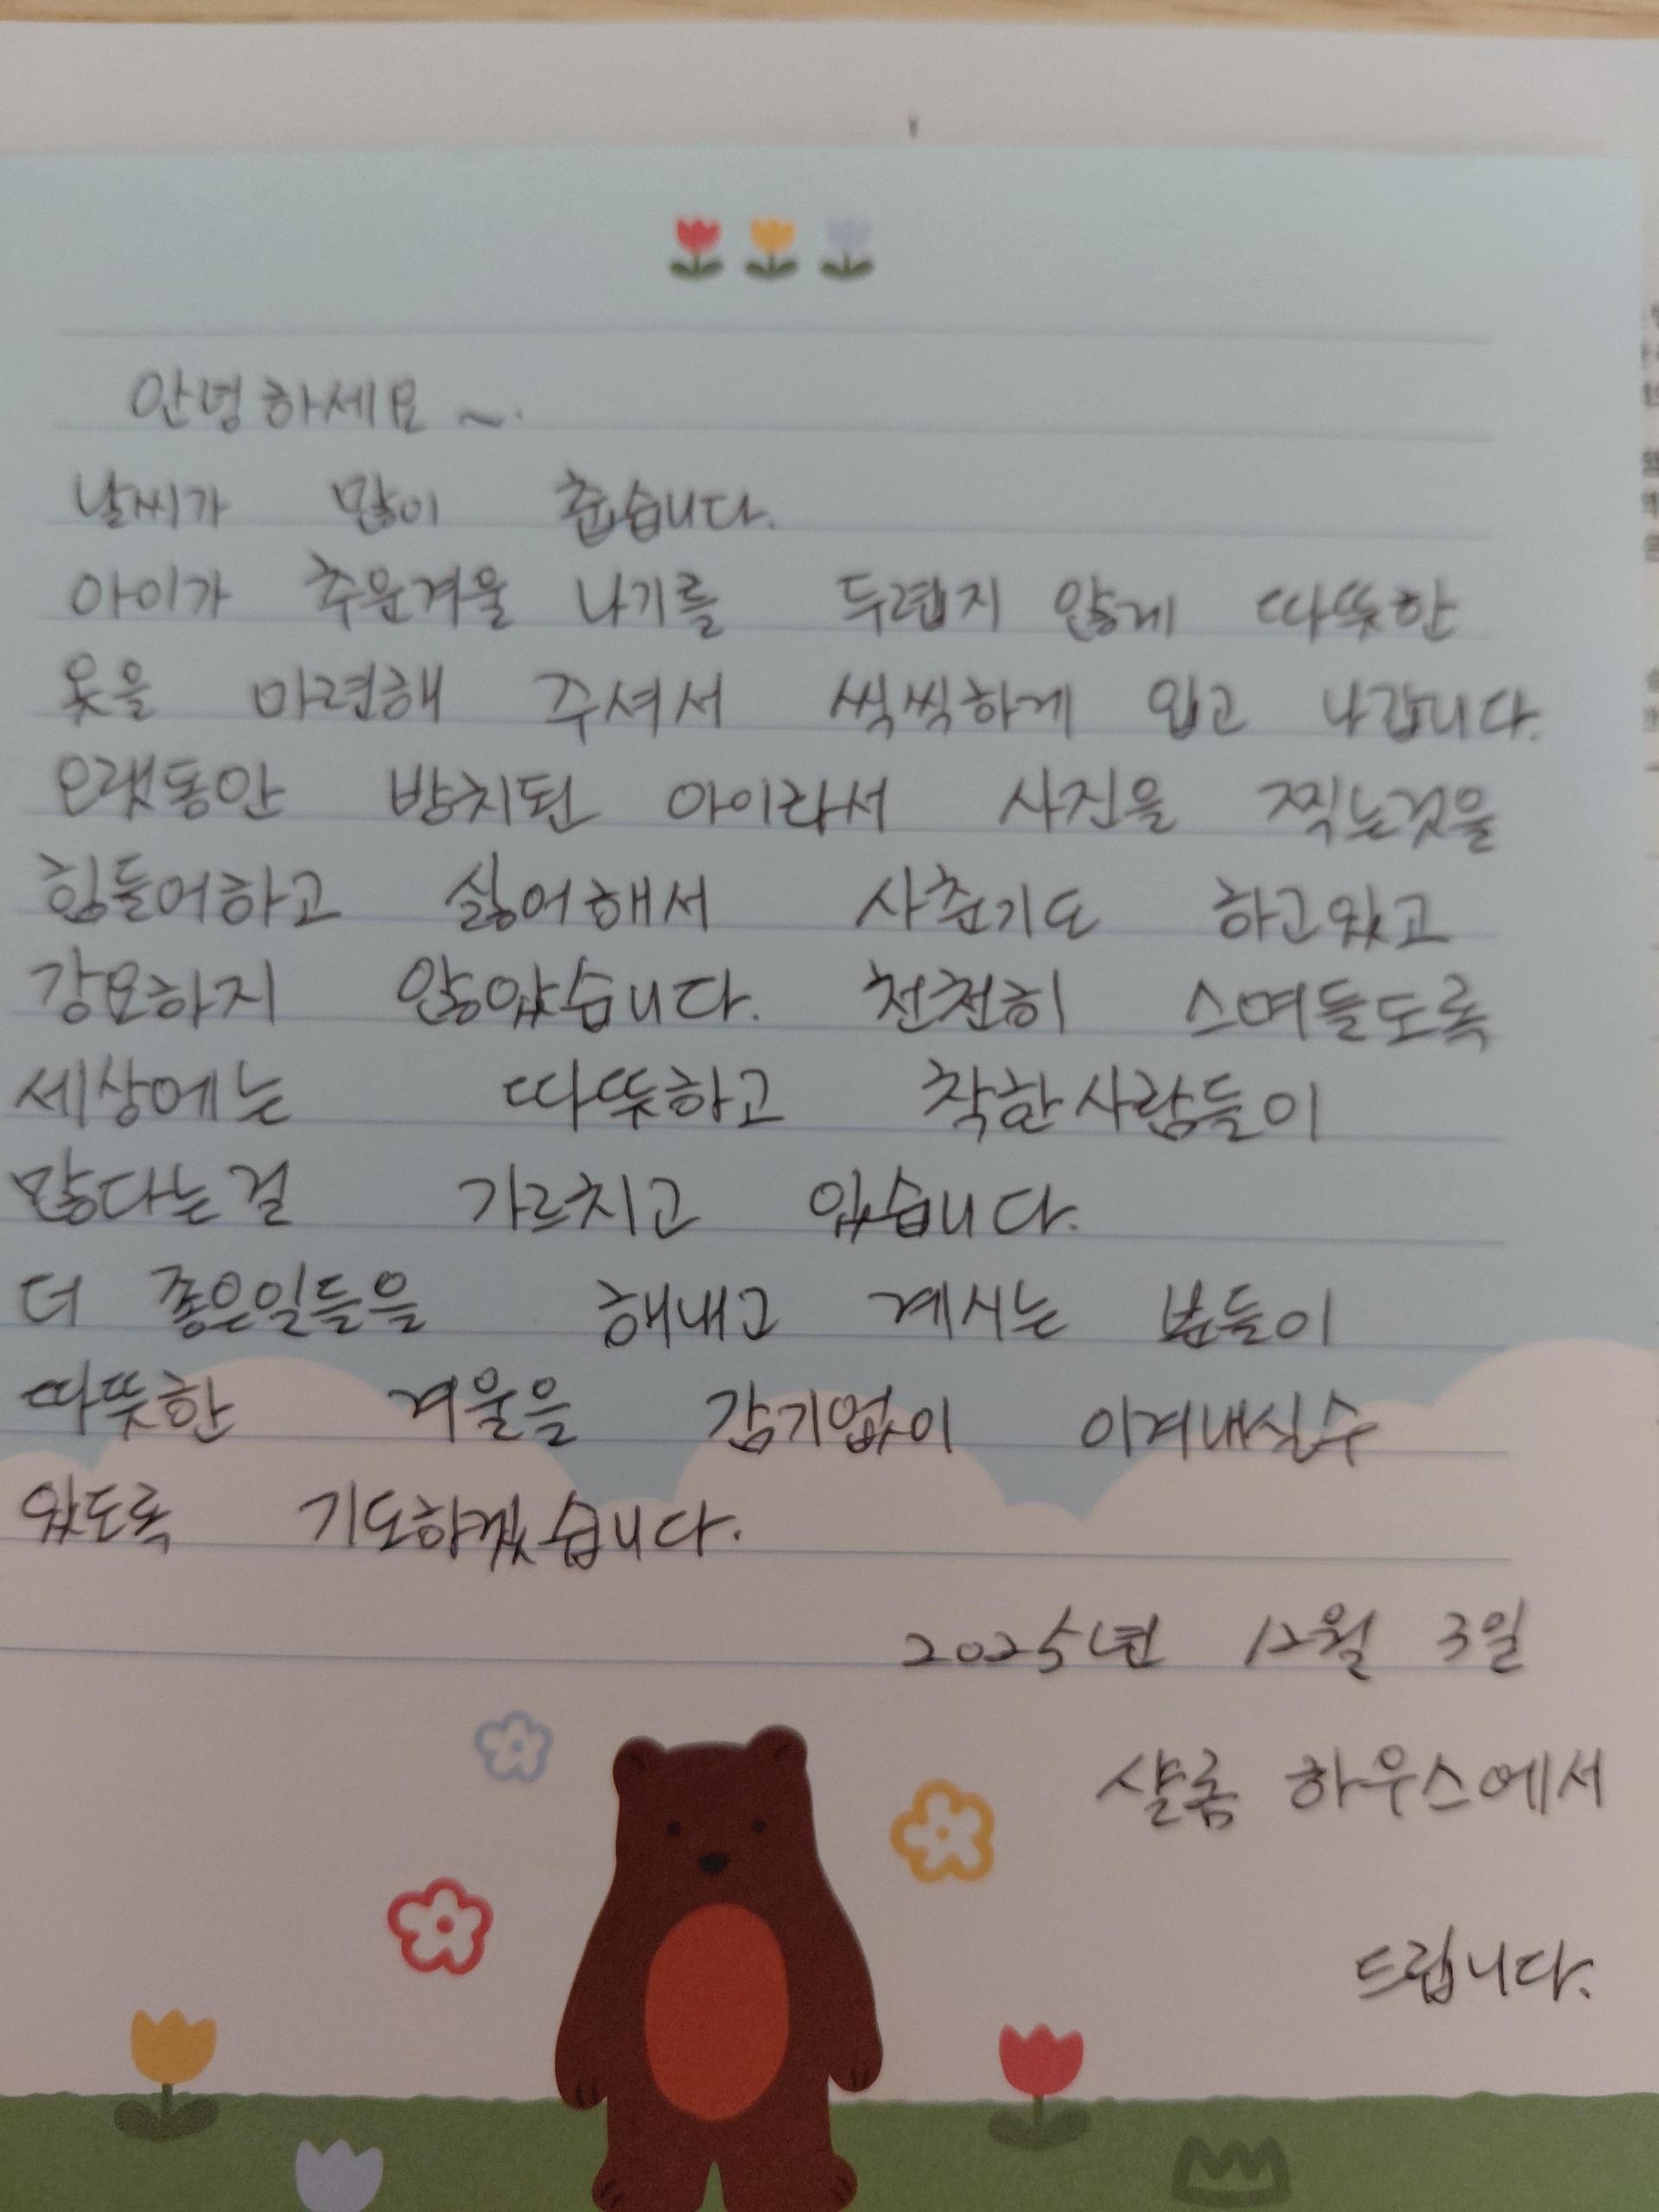 안녕하세요 ~.
날씨가 많이 춥습니다.
아이가 추운겨울 나기를 두렵지 않게 따뜻한
옷을 마련해 주셔서 씩씩하게 입고 나갑니다.
오랫동안 방치된 아이라서 사진을 찍는것을
힘들어하고 싫어해서 사춘기도 하고있고
강요하지 않았습니다. 천천히 스며들도록
세상에는 따뜻하고 착한사람들이
많다는걸 가르치고 있습니다.
더 좋은일들을 해내고 계시는 분들이
따뜻한 겨울을 감기없이 이겨내실수
있도록 기도하겠습니다.
2025년 12월 3일
샬롬 하우스에서
드립니다.